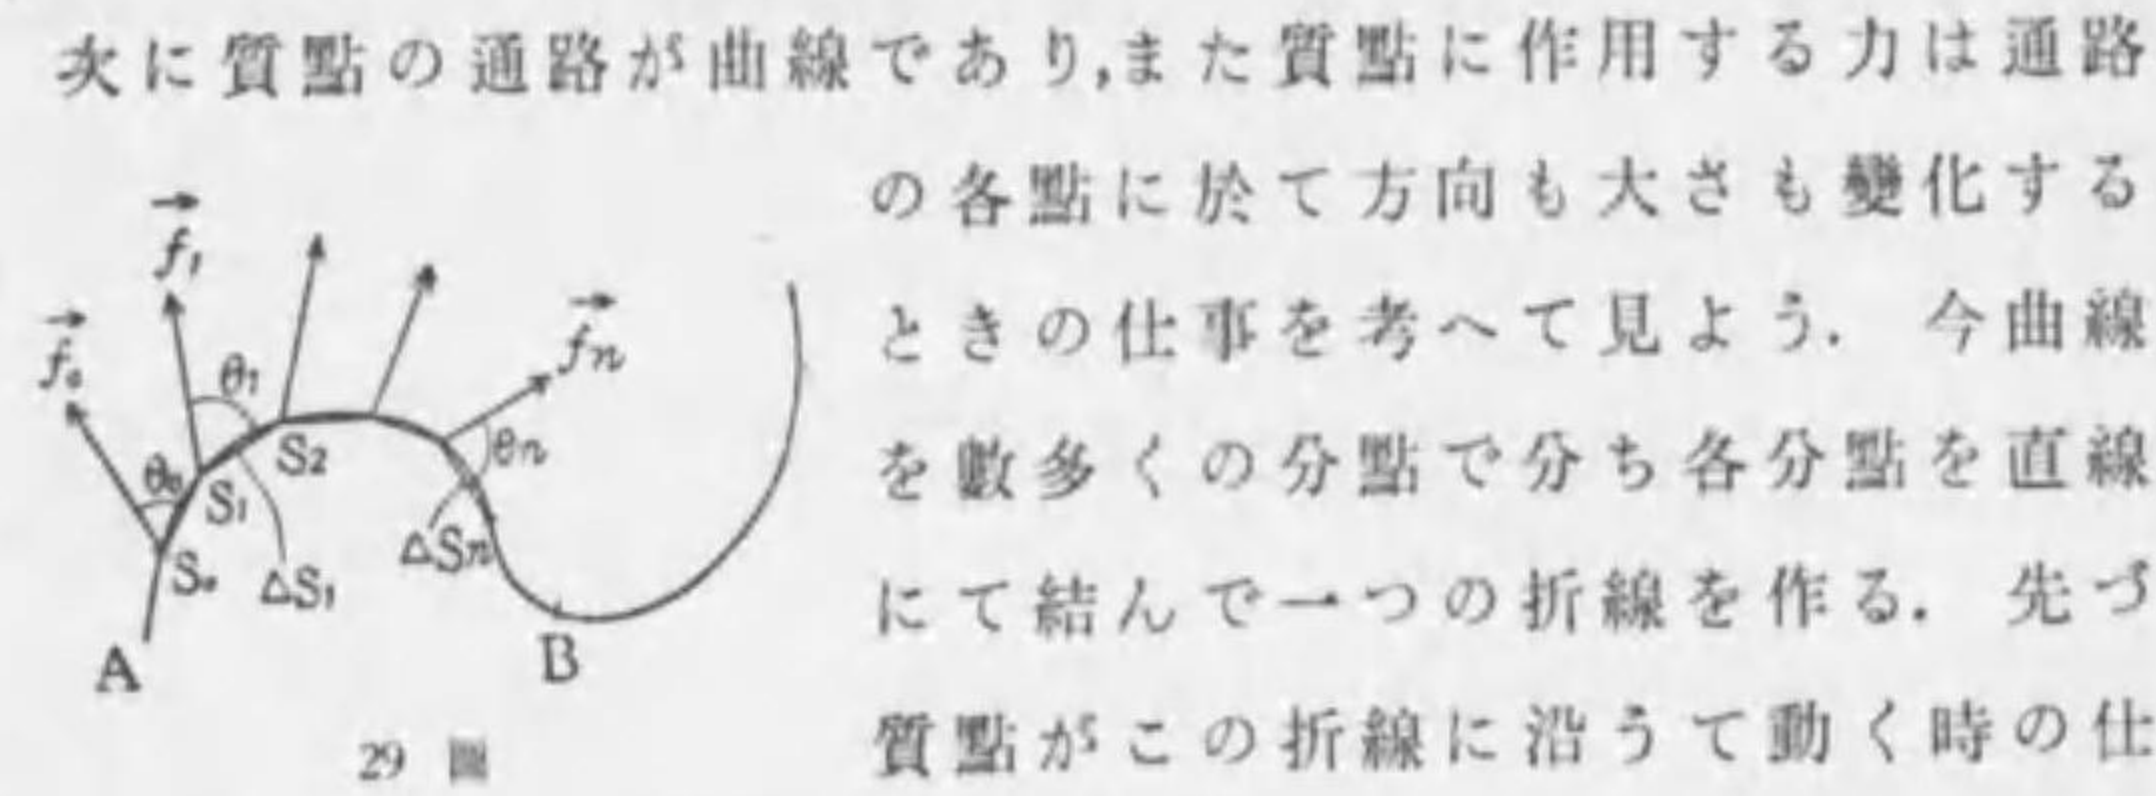 次に質點の通路が曲線であり,また質點に作用する力は通路
の各點に於て方向も大さも變化する
ときの仕事を考へて見よう. 今曲線
を數多くの分點で分ち各分點を直線
にて結んで一つの折線を作る. 先づ
質點がこの折線に沿うて動く時の仕
f₁
f₀
fn
θ₁
θ₀
θn
S₂
S₁
S₀
ΔS₁
ΔSn
A
B
29 圖